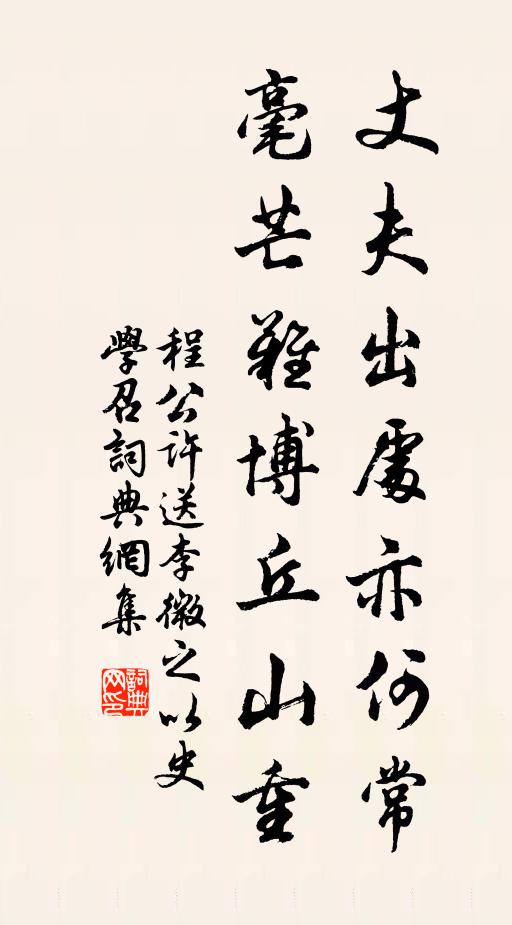 丈夫出處亦何常
毫芒難博丘山重
程公許送李微之以史
學召詞典網集
詞典
网印